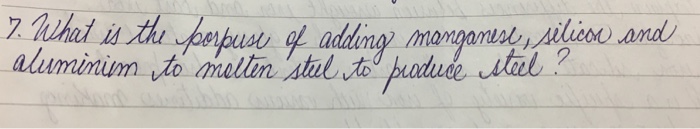 7. What is the porpuse of adding manganese, silicon and
aluminium to molten steel to produce steel?